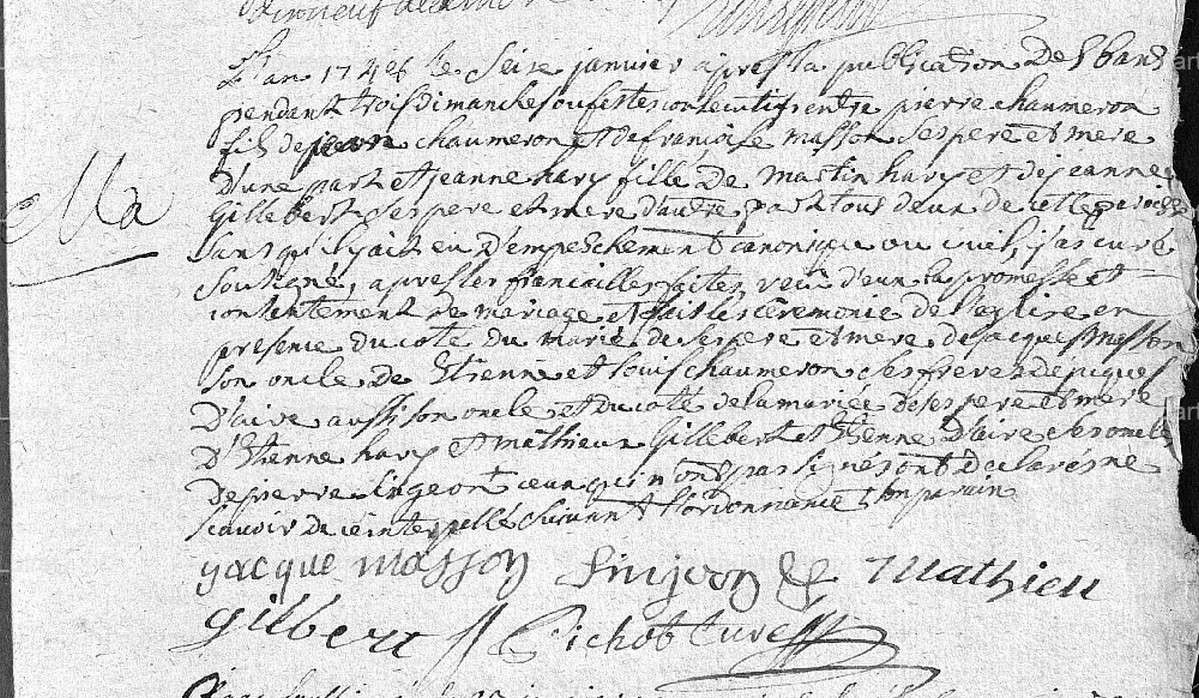 L'an 1746 le seize janvier apres la publication De 3 bans
pendant trois dimanches ou festes consecutifs entre pierre chaumeron
fils de jean chaumeron et de françoise masson ses pere et mere
D'une part et jeanne hary fille De Martin hary et de jeanne
Gillebert ses pere et mere d'autre part tous deux de cette paroisse
sans qu'il y ait eu D'empeschement canonique ou civil, j'ai curé
soussigné, apres les fiancailles faites, receu d'eux la promesse et
consentement de mariage et fait les ceremonie de l'eglise en
presence du coté du marié de ses pere et mere de jacques masson
son oncle de Etienne et louis chaumeron ses freres de
D'aire aussi son oncle et du coté de la mariée de ses pere et mere
D'Etienne hary et mathieu Gillebert et Etienne D'aire ses oncles
de pierre lingeon ceux qui n'ont pas signés ont declarés ne
scavoir de ce interpellé suivant l'ordonnance son parain
yacque masson Linjeon Mathieu
gilbert Pichot curé
Ma